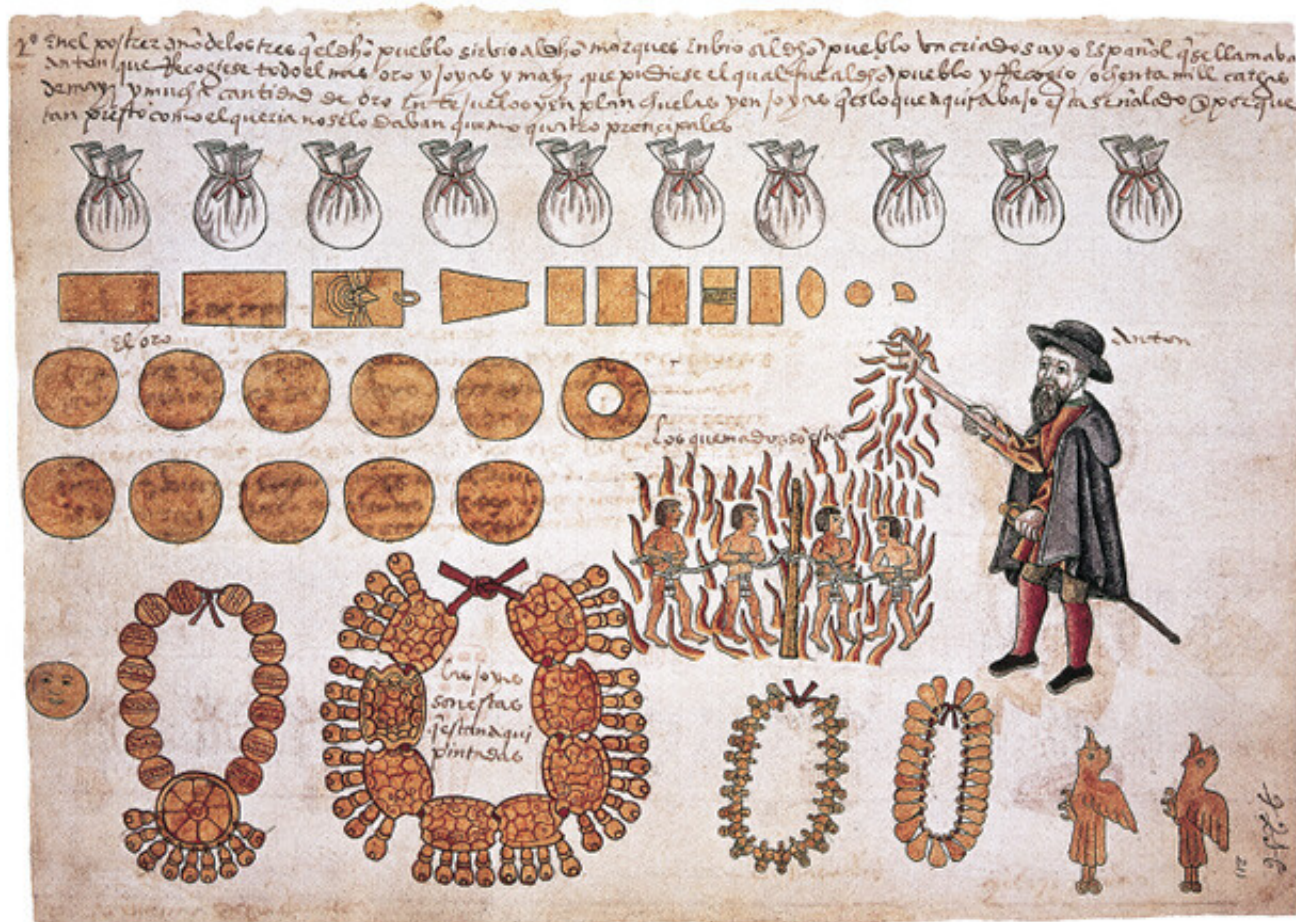 2º Enel postrer año delos tres q̃ el dho pueblo sirvio al dho marques Enbio al dho pueblo un criado suyo Español q̃ se llamava
anton que Recogiese todo el mas oro y joyas y mayz que pudiese el qual fue al dho pueblo y Recogio ochenta mill cargas
de mayz y mucha cantidad de oro En tejuelos y en planchuelas y en joyas q̃ es lo que aqui abajo esta señalado @ porque
tan presto como el queria no se lo daban quemo quatro prencipales
El oro
anton
los quemados so estos
las joyas
son estas
q̃ estan aqui
pintadas
211